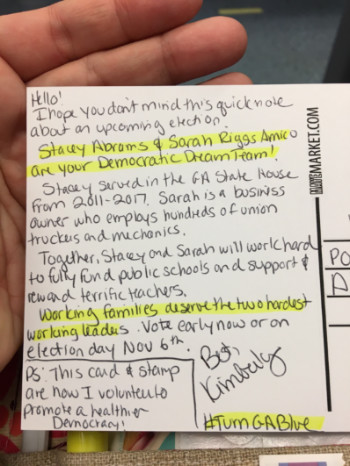 Hello!
I hope you don't mind this quick note
about an upcoming election.
Stacey Abrams & Sarah Riggs Amico
are your Democratic Dream Team!
Stacey served in the GA State House
from 2011-2017. Sarah is a business
owner who employs hundreds of union
truckers and mechanics.
Together, Stacey and Sarah will work hard
to fully fund public schools and support &
reward terrific teachers.
Working families deserve the two hardest
working leaders. Vote early now or on
election day Nov 6th.
Best,
Kimberly
PS: This card & stamp
are how I volunteer to
promote a healthier
Democracy!
#TurnGABlue
MARKET.COM
PO
D